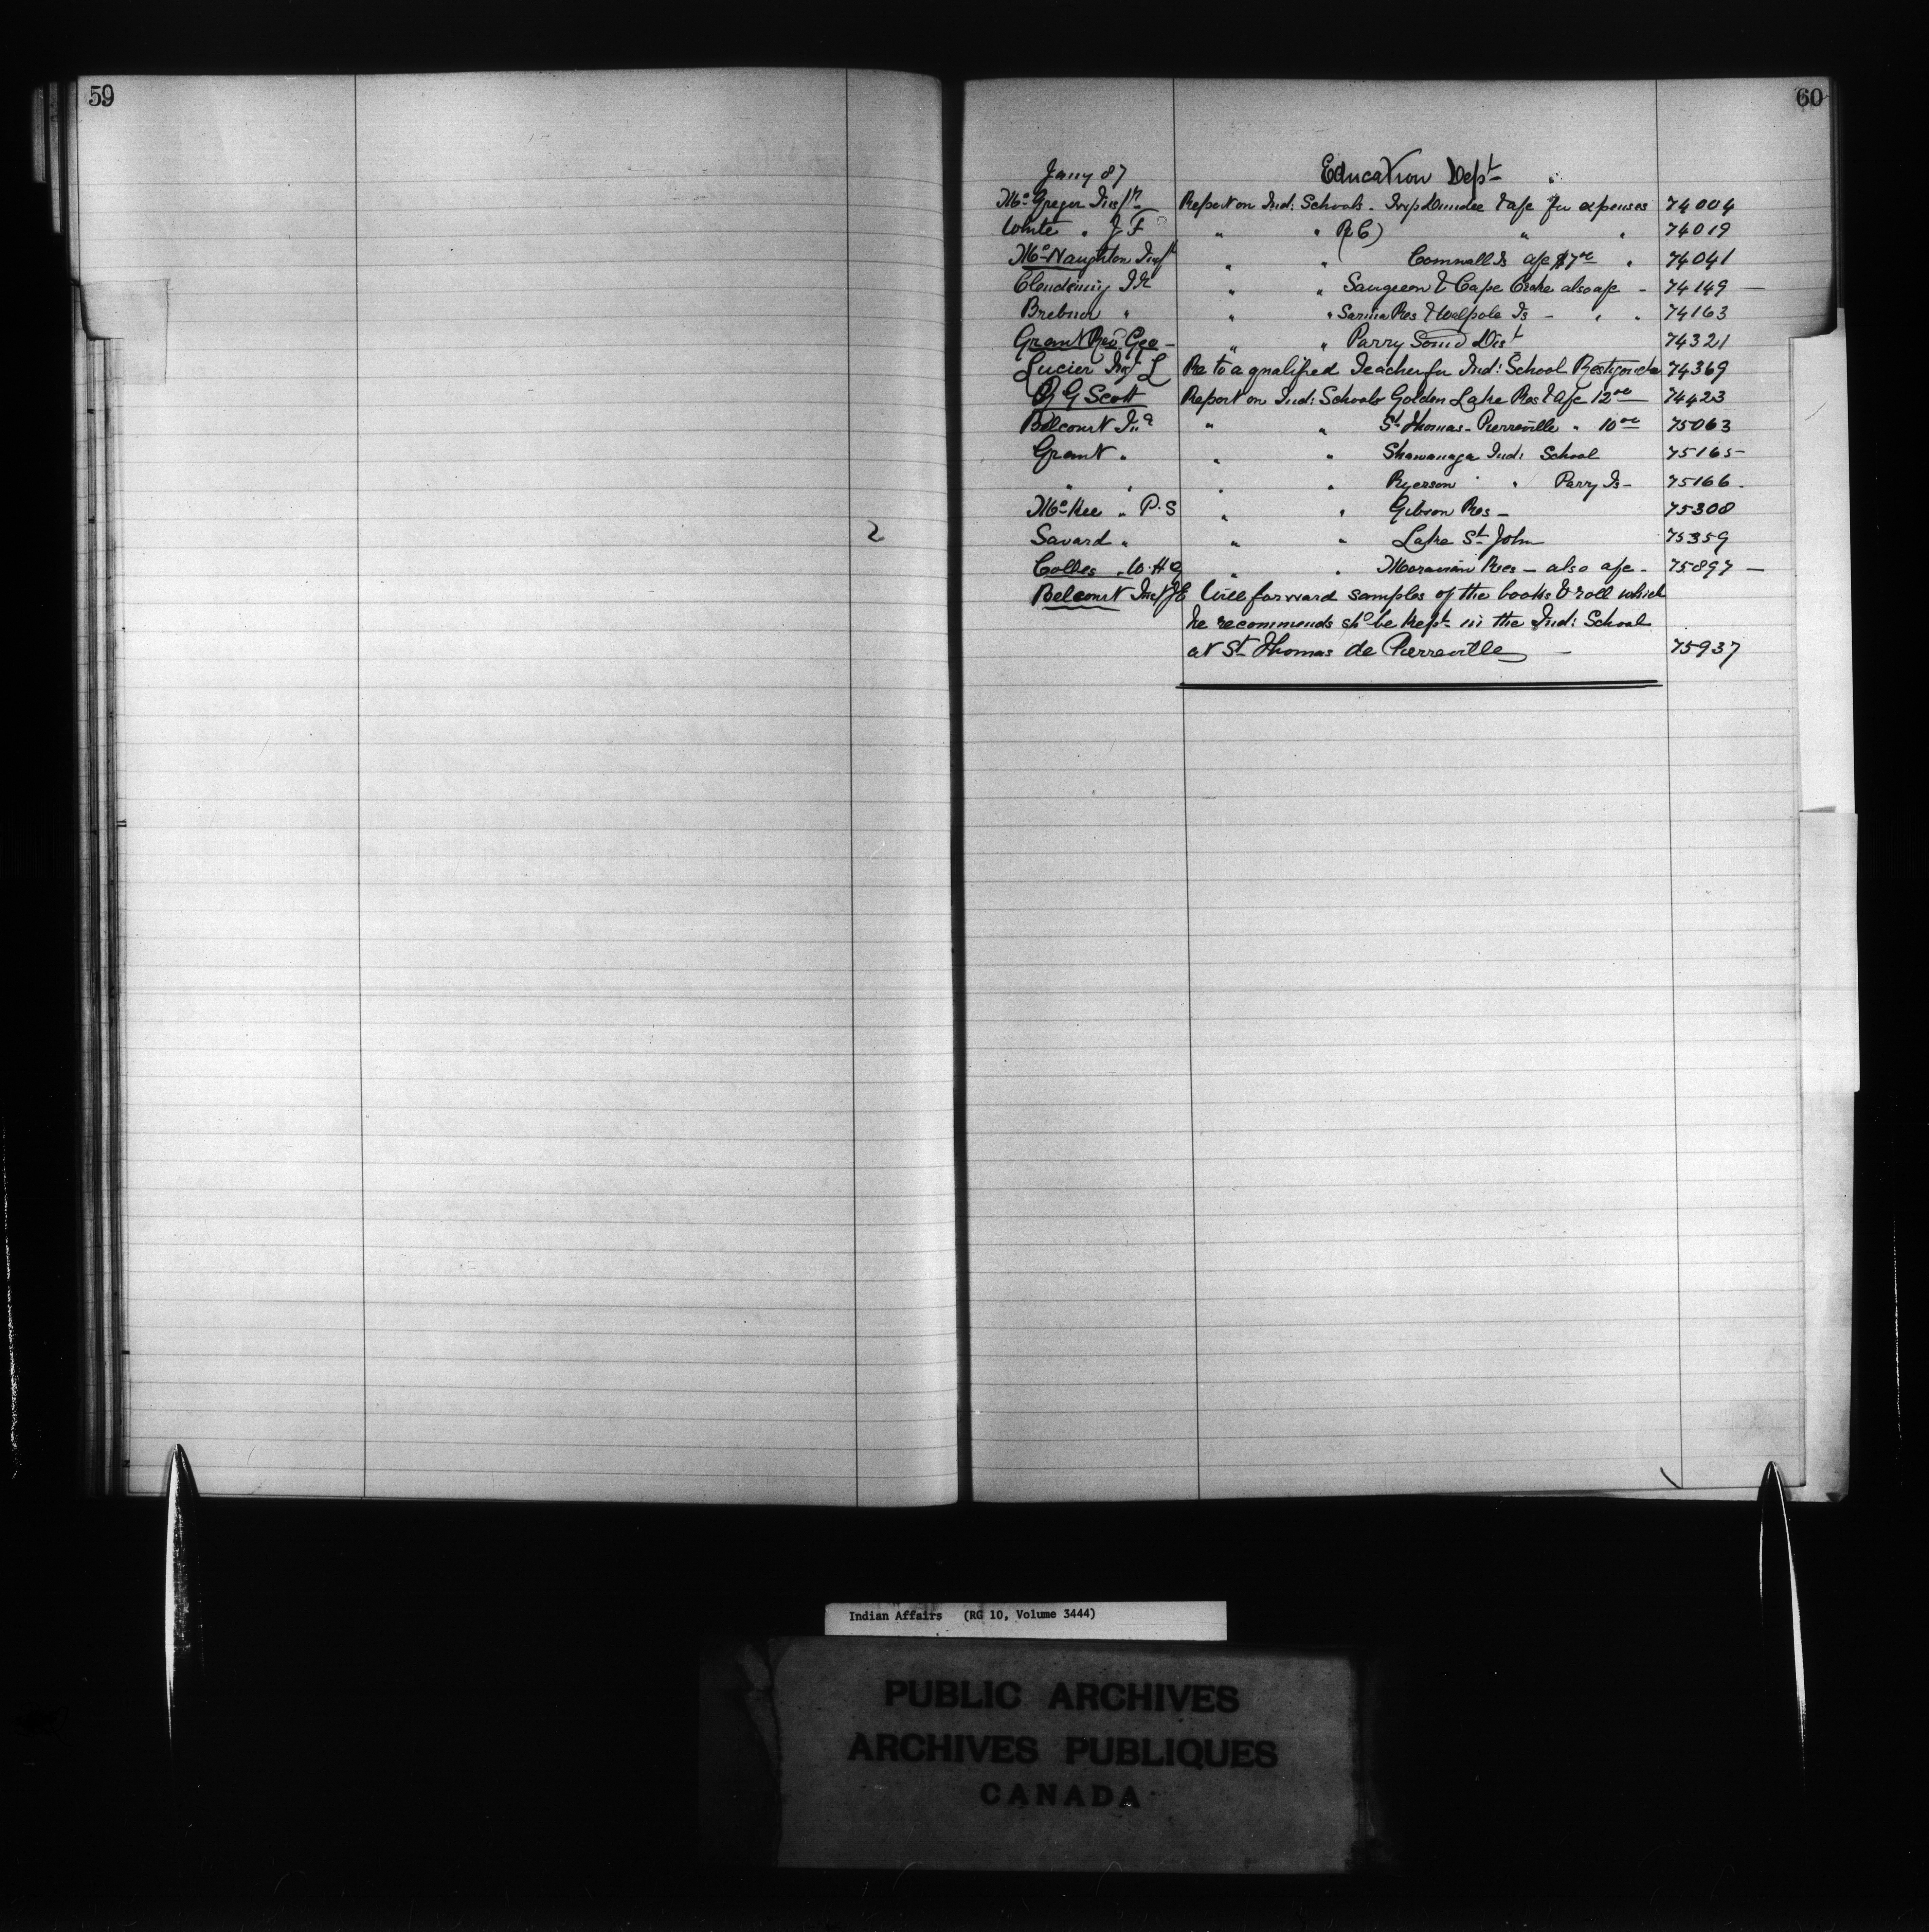 59
60
Jany 87 Education Dept
McGregor Insp Report on Ind: Schools - Dundee & afc for expenses 74004
White " J F " " R C) " " 74019
McNaughton Insp " " Cornwall Is afc $7 00 " 74041
Clendening Ir " " Saugeen & Cape Croke also afc - 74149 -
Brebner " " " Sarnia Res & Walpole Is - " " 74163
Grant Rev Geo - " " Parry Sound Dist 74321
Lucier Insp L Re to a qualified Teacher for Ind: School Restigouche 74369
R G Scott Report on Ind: Schools Golden Lake Res & afc 12 00 74423
Belcourt " " St Thomas - Pierreville " 10 00 75063
Grant " " " Shawanaga Ind: School 75165 -
" " " " Ryerson " " Parry Is - 75166 -
McKee " P. S " " Gibson Res - 75308
Savard " " " Lake St John 75359
Colles " W. H G " " Moravian Res - also afc - 75897 -
Belcourt Insp JE Will forward samples of the books & roll which
he recommends shd be kept in the Ind: School
at St Thomas de Pierreville - 75937
2
Indian Affairs (RG 10, Volume 3444)
PUBLIC ARCHIVES
ARCHIVES PUBLIQUES
CANADA